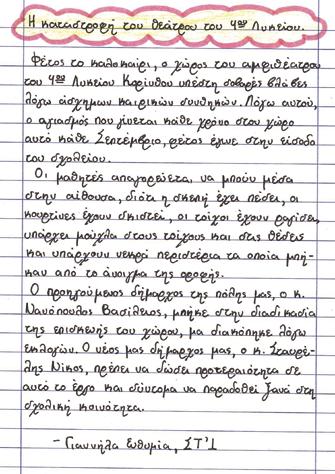 Η καταστροφή του θεάτρου του 4ου Λυκείου.
Φέτος το καλοκαίρι, ο χώρος του αμφιθεάτρου
του 4ου Λυκείου Κορίνθου υπέστη σοβαρές βλάβες
λόγω άσχημων καιρικών συνθηκών. Λόγω αυτού,
ο αγιασμός που γίνεται κάθε χρόνο στον χώρο
αυτό κάθε Σεπτέμβριο, φέτος έγινε στην είσοδο
του σχολείου.
Οι μαθητές απαγορεύεται να μπουν μέσα
στην αίθουσα, διότι η σκεπή έχει πέσει, οι
κουρτίνες έχουν σκιστεί, οι τοίχοι έχουν ραγίσει,
υπάρχει μούχλα στους τοίχους και στις θέσεις
και υπάρχουν νεκρά περιστέρια τα οποία μπή-
καν από το άνοιγμα της οροφής.
Ο προηγούμενος δήμαρχος της πόλης μας, ο κ.
Νανόπουλος Βασίλειος, μπήκε στην διαδικασία
της επισκευής του χώρου, μα διακόπηκε λόγω
εκλογών. Ο νέος μας δήμαρχος μας, ο κ. Σταυρέ-
λης Νίκος, πρέπει να δώσει προτεραιότητα σε
αυτό το έργο και σύντομα να παραδοθεί ξανά στη
σχολική κοινότητα.
- Γιαννήλα Ευθυμία, ΣΤ'1